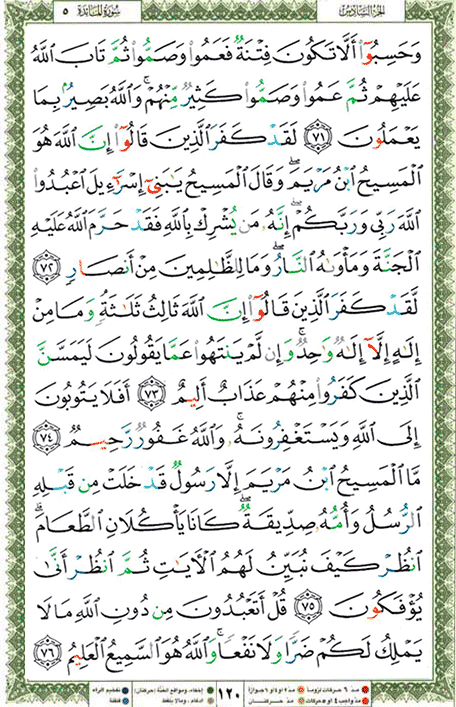 سُورَةُ المَائدَة ٥ الجُزءُ السَّادِسُ
وَحَسِبُوٓا۟ أَلَّا تَكُونَ فِتْنَةٌ فَعَمُوا۟ وَصَمُّوا۟ ثُمَّ تَابَ ٱللَّهُ
عَلَيْهِمْ ثُمَّ عَمُوا۟ وَصَمُّوا۟ كَثِيرٌ مِّنْهُمْ ۚ وَٱللَّهُ بَصِيرٌۢ بِمَا
يَعْمَلُونَ ٧١ لَقَدْ كَفَرَ ٱلَّذِينَ قَالُوٓا۟ إِنَّ ٱللَّهَ هُوَ
ٱلْمَسِيحُ ٱبْنُ مَرْيَمَ ۖ وَقَالَ ٱلْمَسِيحُ يَٰبَنِىٓ إِسْرَٰٓءِيلَ ٱعْبُدُوا۟
ٱللَّهَ رَبِّى وَرَبَّكُمْ ۖ إِنَّهُۥ مَن يُشْرِكْ بِٱللَّهِ فَقَدْ حَرَّمَ ٱللَّهُ عَلَيْهِ
ٱلْجَنَّةَ وَمَأْوَىٰهُ ٱلنَّارُ ۖ وَمَا لِلظَّٰلِمِينَ مِنْ أَنصَارٍ ٧٢
لَّقَدْ كَفَرَ ٱلَّذِينَ قَالُوٓا۟ إِنَّ ٱللَّهَ ثَالِثُ ثَلَٰثَةٍ ۘ وَمَا مِنْ
إِلَٰهٍ إِلَّآ إِلَٰهٌ وَٰحِدٌ ۚ وَإِن لَّمْ يَنتَهُوا۟ عَمَّا يَقُولُونَ لَيَمَسَّنَّ
ٱلَّذِينَ كَفَرُوا۟ مِنْهُمْ عَذَابٌ أَلِيمٌ ٧٣ أَفَلَا يَتُوبُونَ
إِلَى ٱللَّهِ وَيَسْتَغْفِرُونَهُۥ ۚ وَٱللَّهُ غَفُورٌ رَّحِيمٌ ٧٤
مَّا ٱلْمَسِيحُ ٱبْنُ مَرْيَمَ إِلَّا رَسُولٌ قَدْ خَلَتْ مِن قَبْلِهِ
ٱلرُّسُلُ وَأُمُّهُۥ صِدِّيقَةٌ ۖ كَانَا يَأْكُلَانِ ٱلطَّعَامَ ۗ
ٱنظُرْ كَيْفَ نُبَيِّنُ لَهُمُ ٱلْءَايَٰتِ ثُمَّ ٱنظُرْ أَنَّىٰ
يُؤْفَكُونَ ٧٥ قُلْ أَتَعْبُدُونَ مِن دُونِ ٱللَّهِ مَا لَا
يَمْلِكُ لَكُمْ ضَرًّا وَلَا نَفْعًا ۚ وَٱللَّهُ هُوَ ٱلسَّمِيعُ ٱلْعَلِيمُ ٧٦
١٢٠